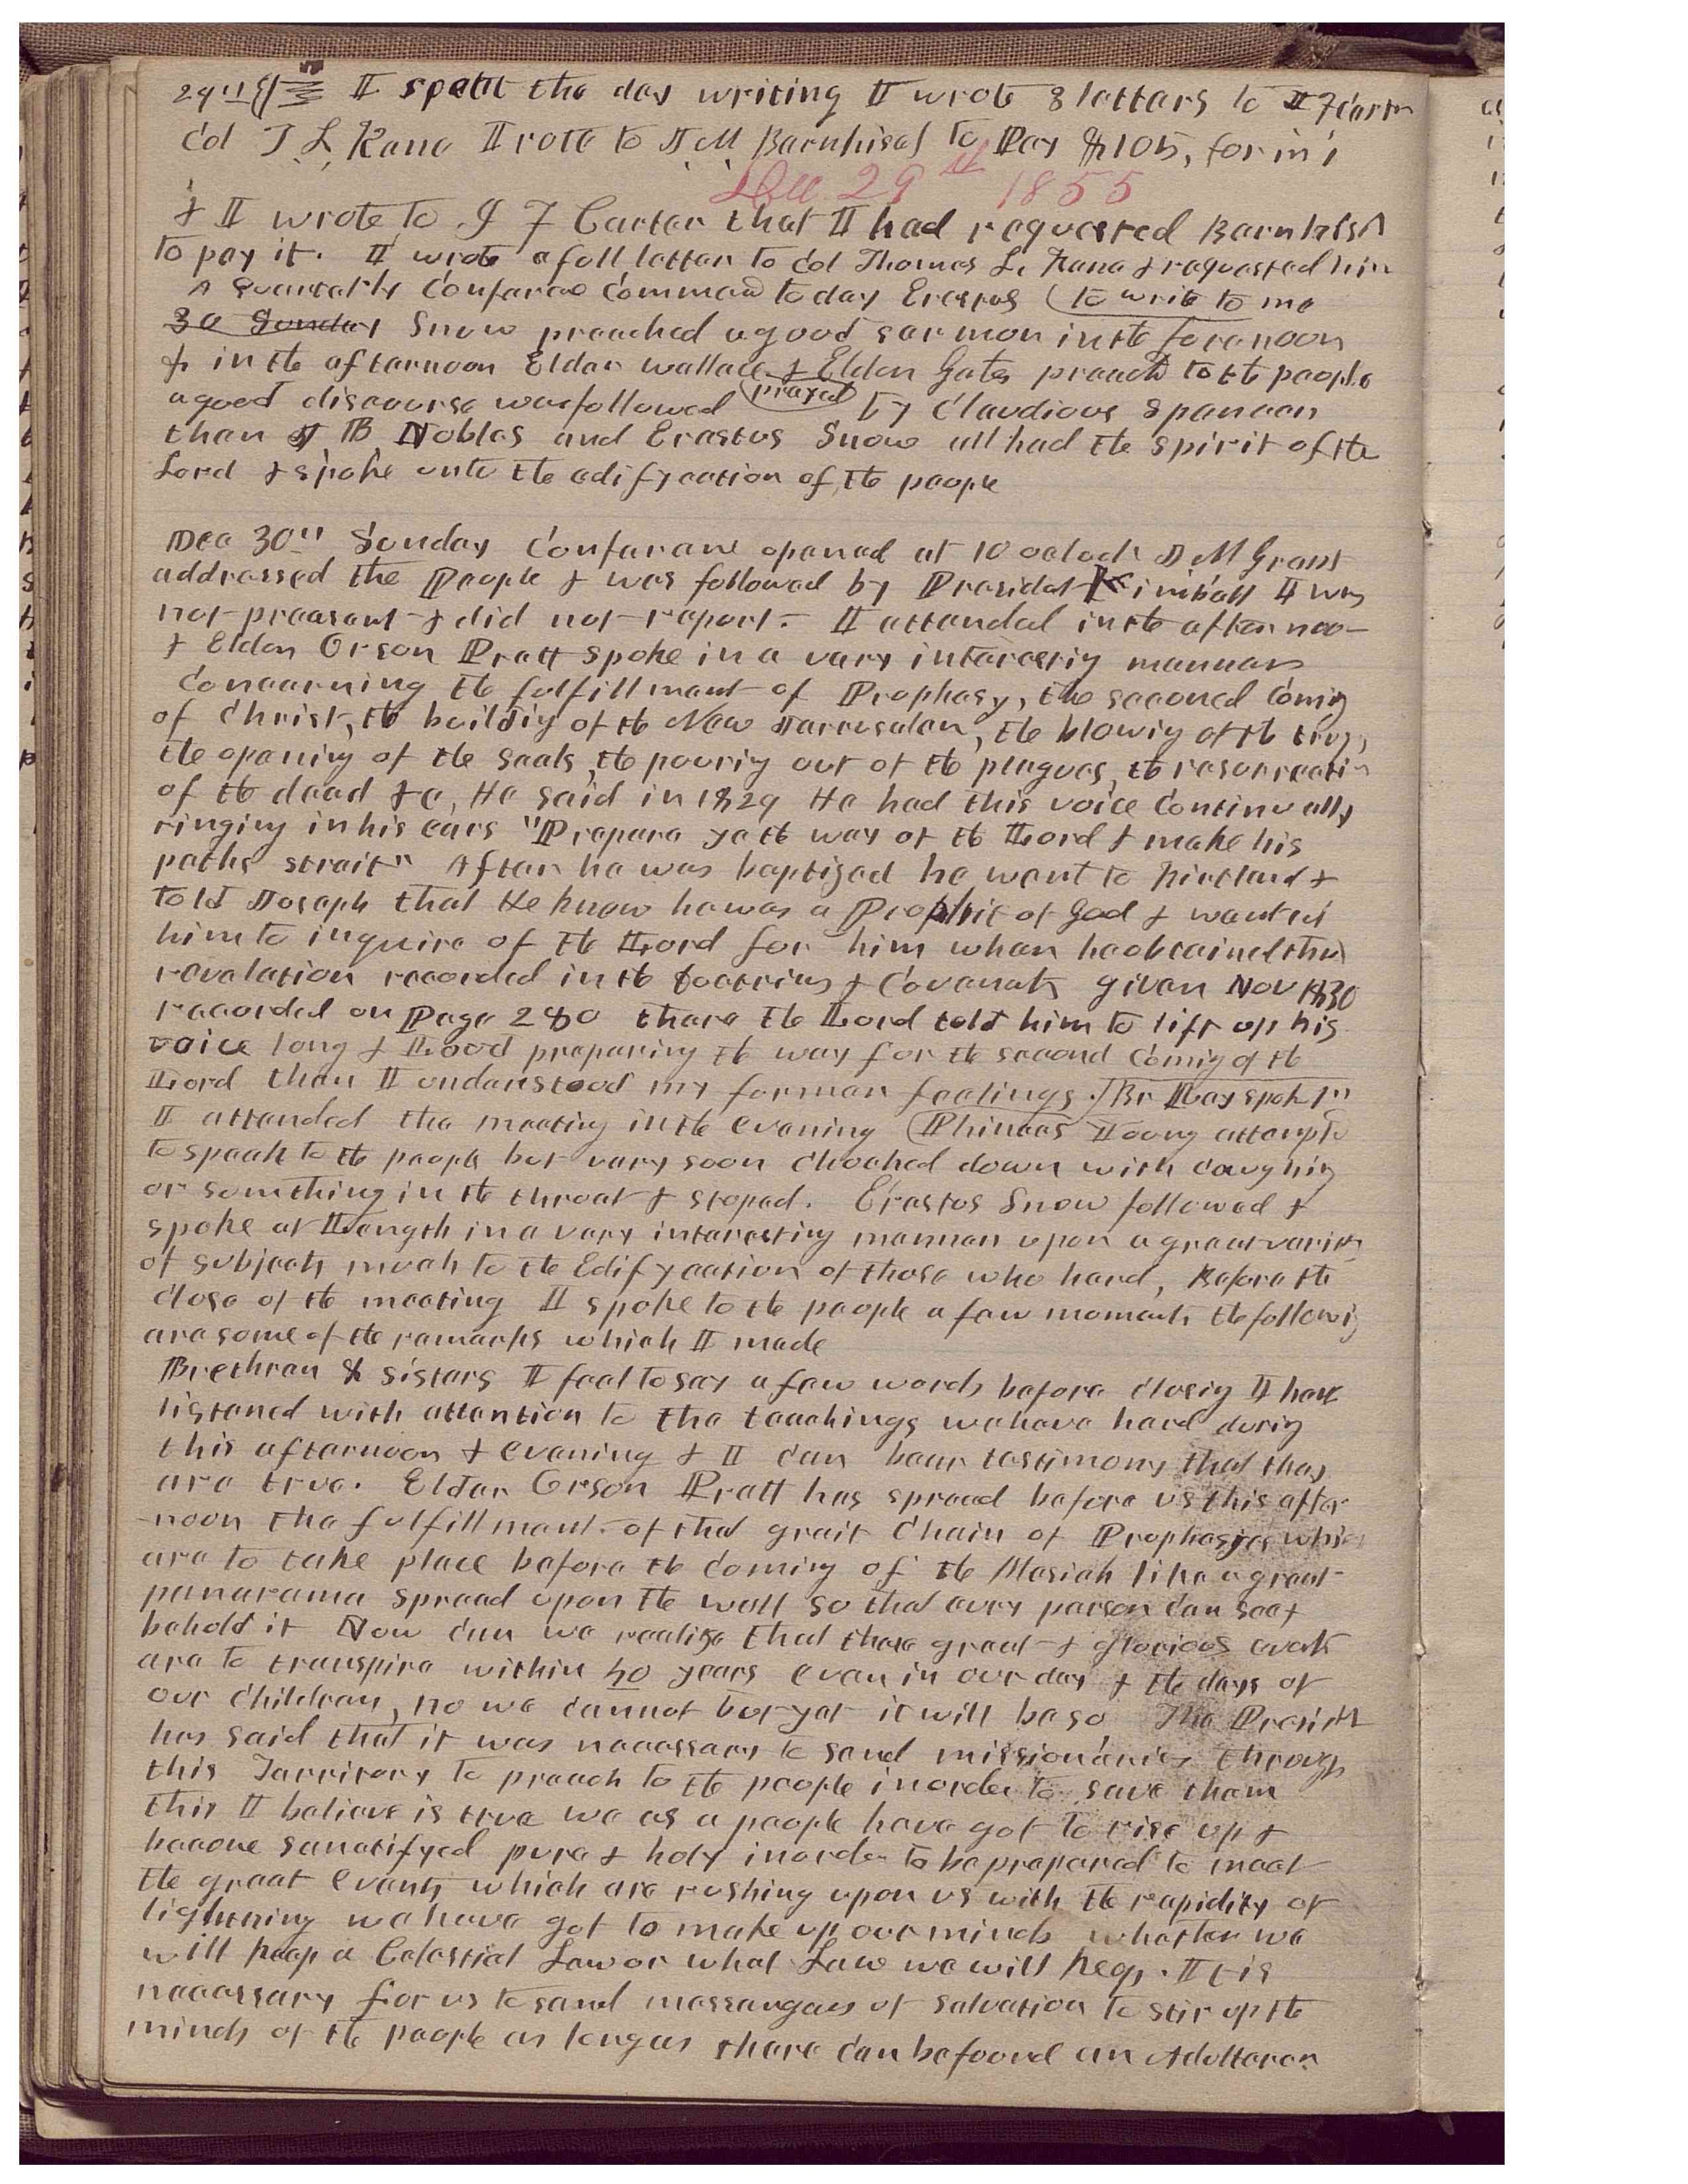 29th I spent the day writing I wrote 3 letters to I F Carter
Col T L Kane I rote to J M Barnhisel to Pay $105, for
Dec 29th 1855
& I wrote to I F Carter that I had requested Barnhisel
to pay it. I wrote a full letter to Col Thomas L. Kane & requested him
A Quarterly Conferce Commencd to day Erastus (to write to me
30 Sunday Snow preached a good sermon in the forenoon
& in the afternoon Elder Wallace & Elder Gates preachd to the people
prayed
a good discourse was followed by Claudious Spencer
then J B Nobles and Erastus Snow all had the spirit of the
Lord & spoke unto the edifycation of the people
Dec 30th Sunday Conference opened at 10 oclock J M Grant
addressed the People & was followed by Presidet Kimball I was
not preasent & did not report. I attended in the afternoo-
& Elder Orson Pratt spoke in a very interesting manner
Concerning the fulfillment of Prophesy, the second Comig
of Christ, the buildig of the New Jerrusalem, the blowig of the trup,
the opening of the seals, the pourig out of the plagues, the resurrectin
of the dead &c, He said in 1829 He had this voice Continually
ringing in his ears "Prepare ye the way of the Lord & make his
paths strait" After he was baptized he went to Kirtland &
told Joseph that He knew he was a Prophit of God & wanted
him to inquire of the Lord for him when he obtained the
revelation recorded in the Doctrins & Covenants given Nov 1830
recorded on Page 280 there the Lord told him to lift up his
voice long & Loud preparing the way for the second Comig of the
Lord then I understood my former feelings. Br Lay spok in
I attended the meeting in the evening (Phineas Young attempted
to speak to the people but very soon choched down with coughig
or something in the throat & stoped. Erastus Snow followed &
spoke at Length in a very interesting manner upon a great variety
of subjects much to the Edifycation of those who hard, Before the
close of the meeting I spoke to the people a few moments the followig
are some of the remarks which I made
Brethren & sisters I feel to say a few words before closig I have
listened with attention to the teachings we have hard durig
this afternoon & evening & I can bear testimony that they
are true. Elder Orson Pratt has spread before us this after
-noon the fulfillment of that grait Chain of Prophesyes which
are to take place before the coming of the Mesiah like a great
panarama spread upon the wall so that evry person can see &
behold it Now can we realize that these great & glorious events
are to transpire within 40 years even in our day & the days of
our Children, no we cannot but yet it will be so The Presidt
has said that it was necessary to send missionaries through
this Territory to preach to the people in order to save them
this I believe is true we as a people have got to rise up &
become sanctifyed pure & holy in order to be prepared to meet
the great events which are rushing upon us with the rapidity of
lightning we have got to make up our minds whether we
will keep a Celestial Law or what Law we will keep. It is
necessary for us to send messengers of salvation to stir up the
minds of the people as long as there can be found an Adulterer